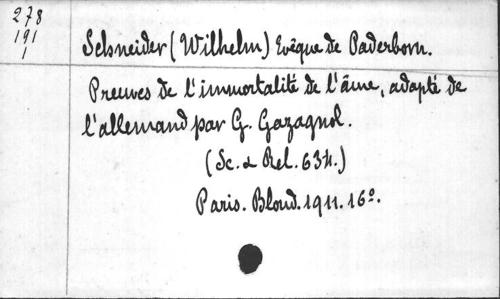 278
191
1
Schneider (Wilhelm) Evêque de Paderborn.
Preuves de l'immortalité de l'âme, adapté de
l'allemand par G. Gazagnol.
(Sc. & Rel. 634.)
Paris. Bloud. 1911. 16º.